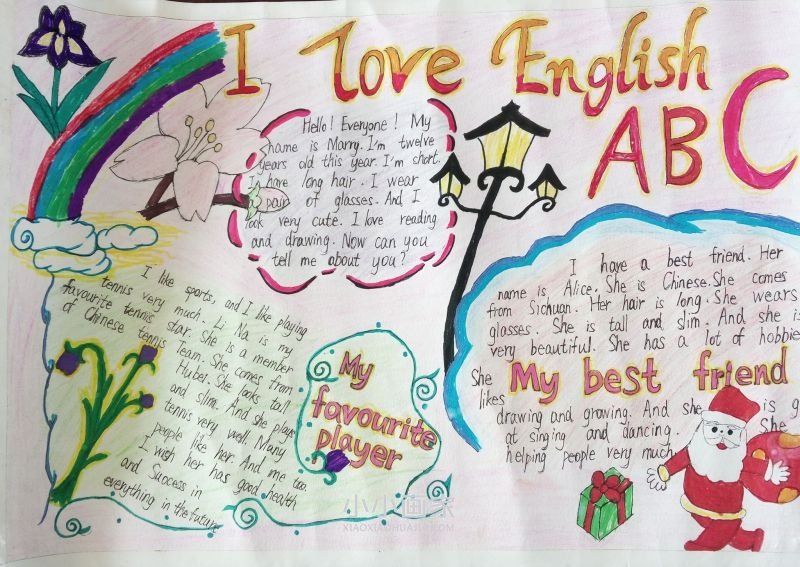 I Love English
ABC
Hello! Everyone! My
name is Marry. I'm twelve
years old this year. I'm short.
I have long hair. I wear
a pair of glasses. And I
look very cute. I love reading
and drawing. Now can you
tell me about you?
I like sports, and I like playing
tennis very much. Li Na is my
favourite tennis star. She is a member
of Chinese tennis Team. She comes from
Hubei. She looks tall
and slim. And she plays
tennis very well. Many
people like her. And me too.
I wish her has good health
and Success in
everything in the future
My
favourite
player
I have a best friend. Her
name is Alice. She is Chinese. She comes
from Sichuan. Her hair is long. She wears
glasses. She is tall and slim. And she is
very beautiful. She has a lot of hobbie
She
likes
My best friend
drawing and growing. And she is g
at singing and dancing. She
helping people very much
小小画家
XIAOXIAOHUAJIA.COM